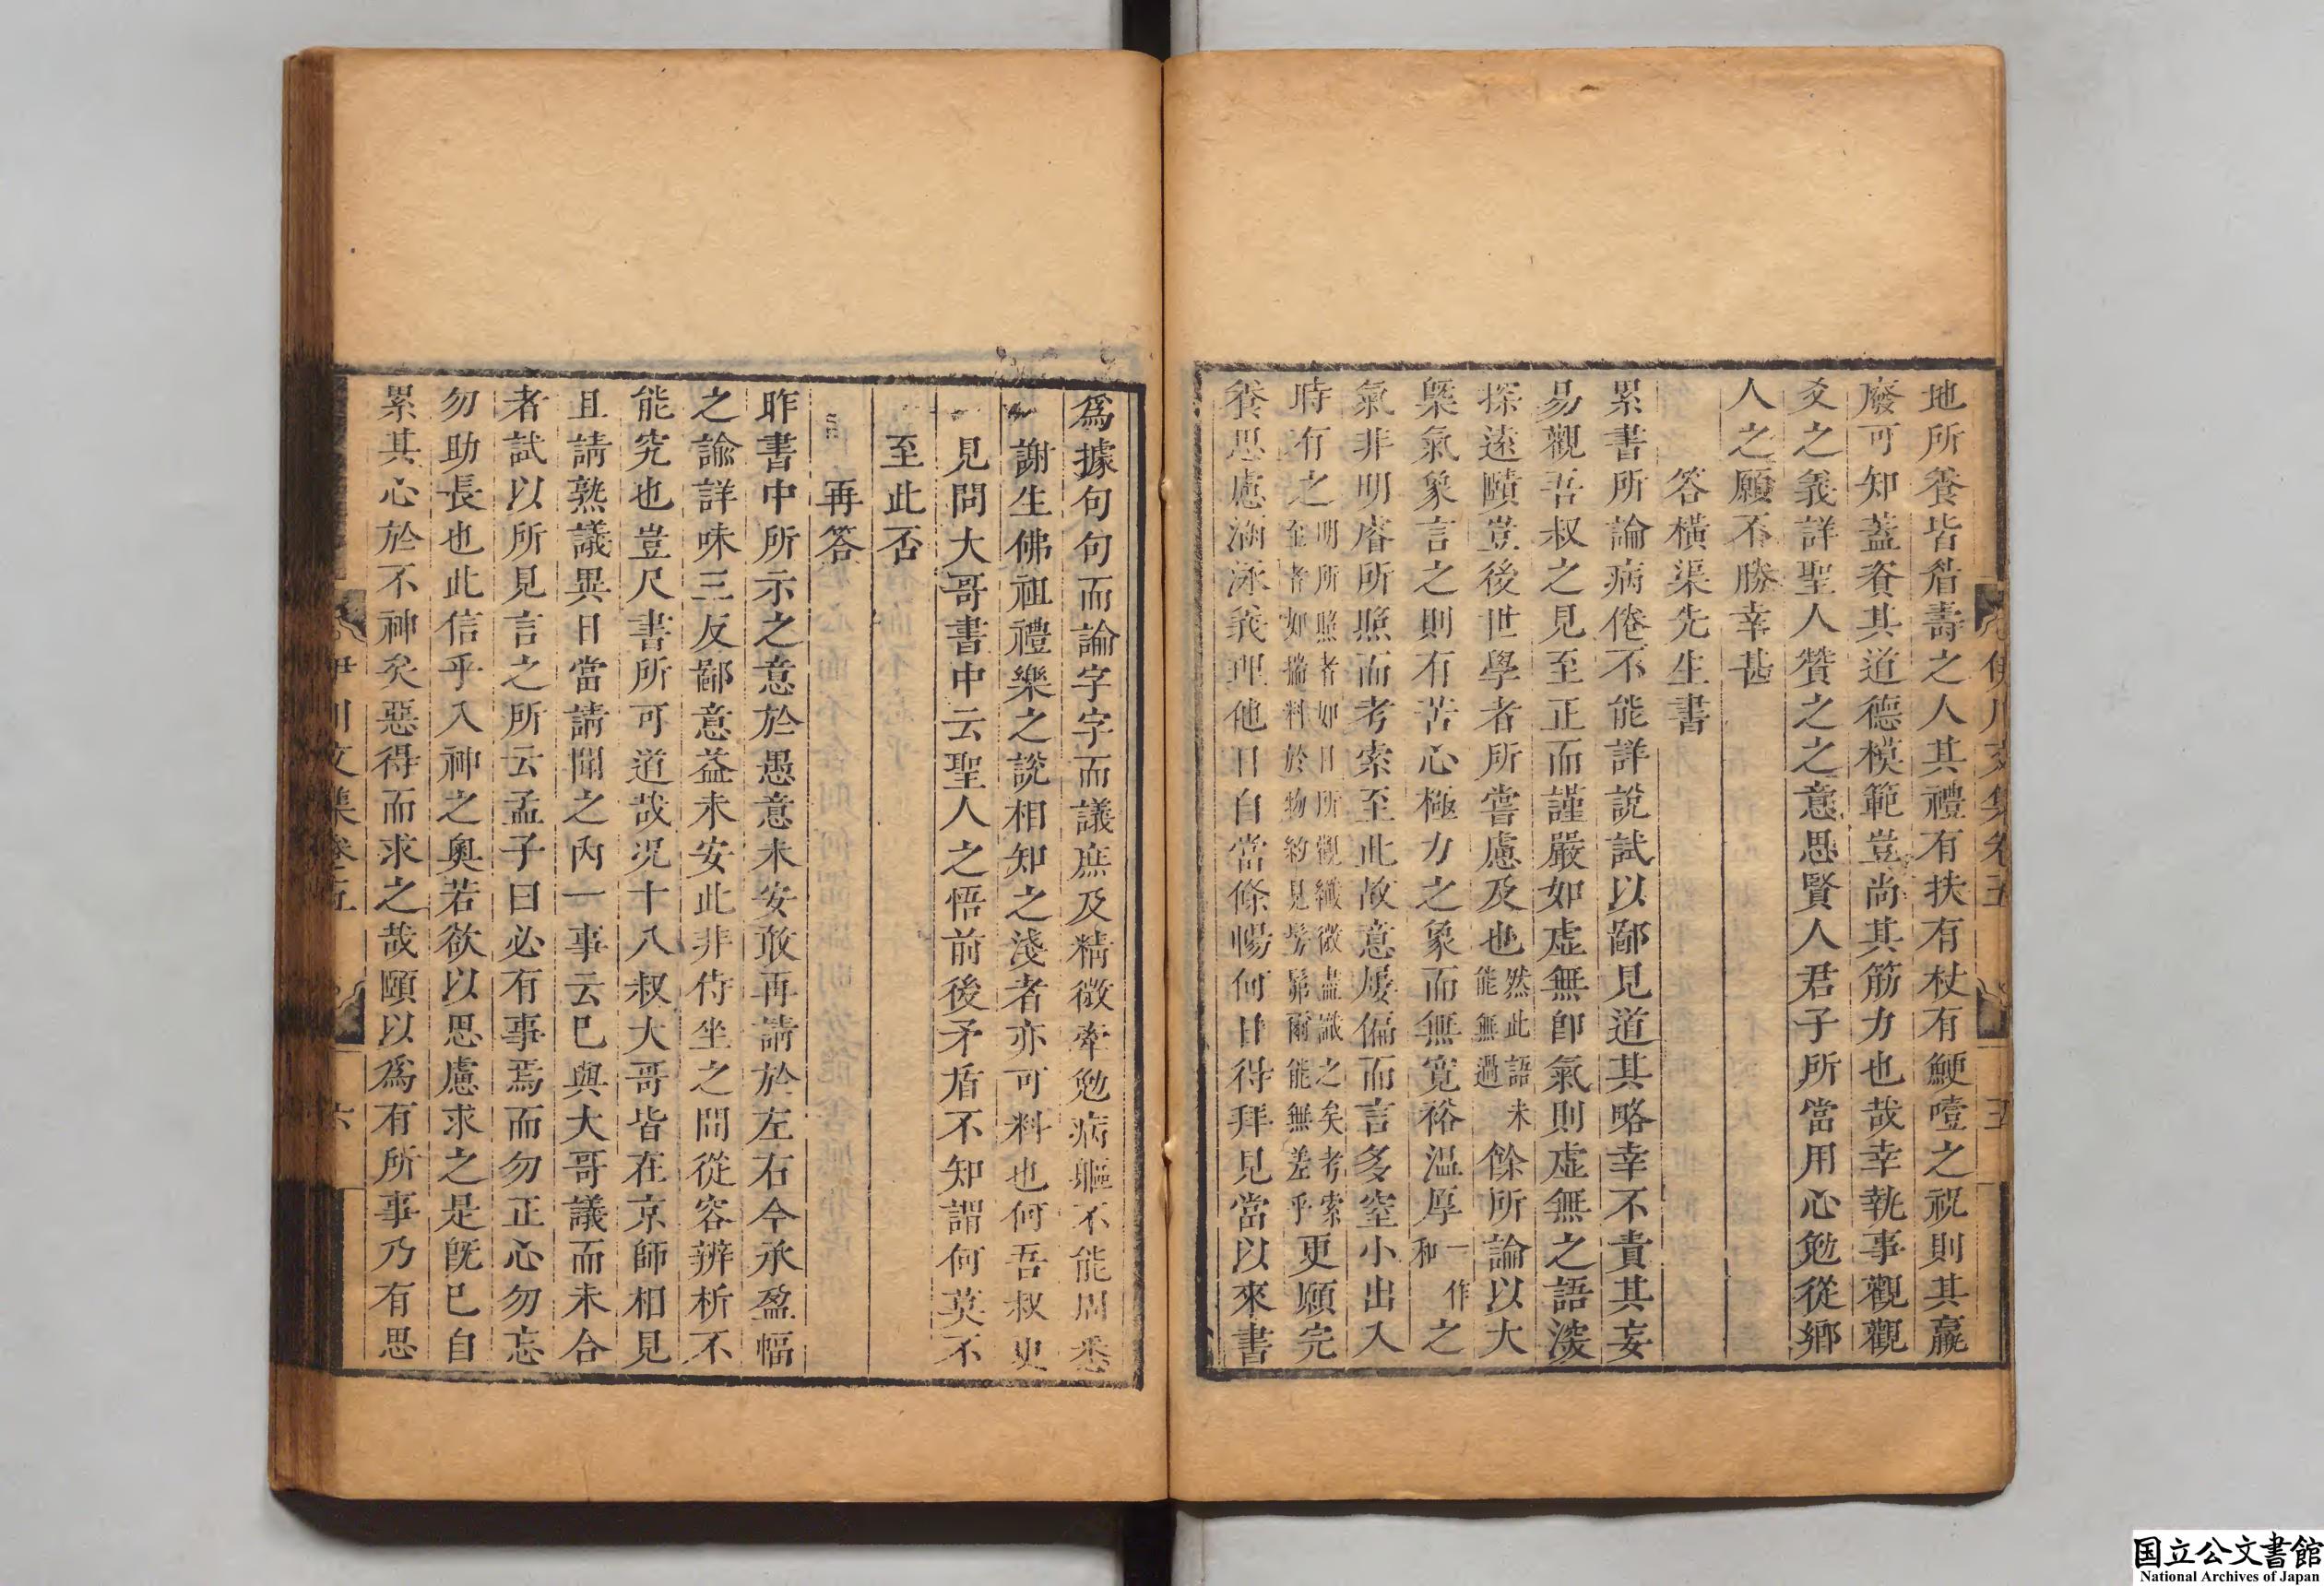 地所養皆耆壽之人其禮有扶有杖有鯁噎之祝則其羸
廢可知蓋資其道德模範豈尚其筋力也哉幸執事觀觀
爻之義詳聖人贊之之意思賢人君子所當用心勉從鄉
人之願不勝幸甚
答橫渠先生書
累書所論病倦不能詳說試以鄙見道其略幸不責其妄
易觀吾叔之見至正而謹嚴如虛無卽氣則虛無之語深
探遠賾豈後世學者所嘗慮及也然此語未能無過餘所論以大
槩氣象言之則有苦心極力之象而無寬裕溫厚一作和之
氣非明睿所照而考索至此故意屢偏而言多窒小出入
時有之明所照者如目所觀纖微盡識之矣考索至者如揣料於物約見髣髴爾能無差乎更願完
養思慮涵泳義理他日自當條暢何日得拜見當以來書
伊川文集卷五
五
爲據句句而論字字而議庶及精微牽勉病軀不能周悉
謝生佛祖禮樂之說相知之淺者亦可料也何吾叔更
見問大哥書中云聖人之悟前後矛盾不知謂何莫不
至此否
再答
昨書中所示之意於愚意未安敢再請於左右今承盈幅
之諭詳味三反鄙意益未安此非侍坐之間從容辨析不
能究也豈尺書所可道哉况十八叔大哥皆在京師相見
且請熟議異日當請聞之內一事云已與大哥議而未合
者試以所見言之所云孟子曰必有事焉而勿正心勿忘
勿助長也此信乎入神之奧若欲以思慮求之是旣已自
累其心於不神矣惡得而求之哉頤以爲有所事乃有思
伊川文集卷五
六
国立公文書館
National Archives of Japan